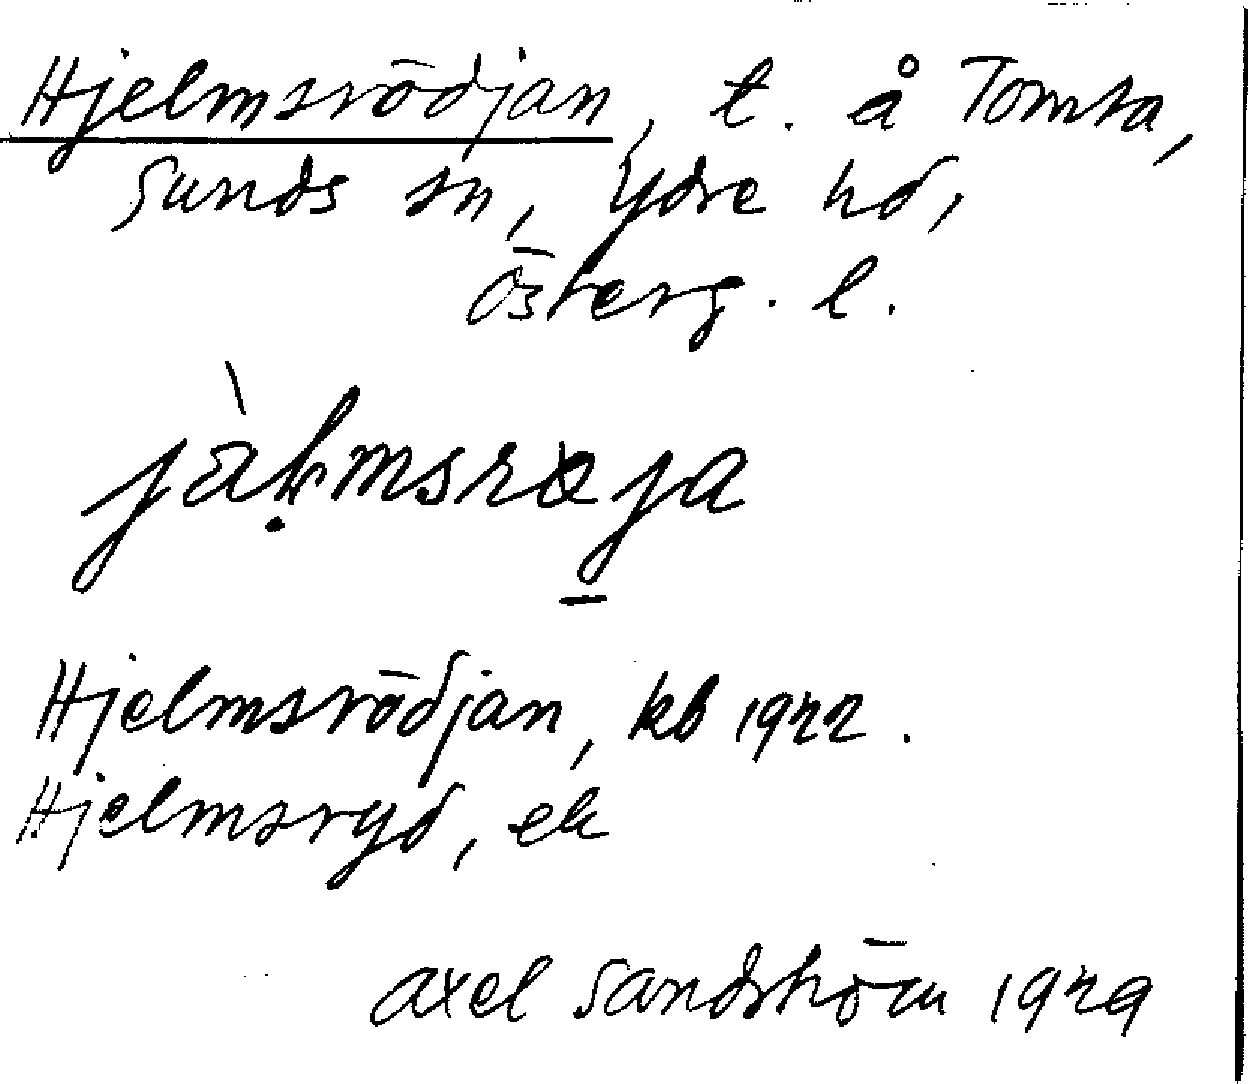 Hjelmsrödjan, t. å Tomta,
Sunds sn, Ydre hd,
Österg. l.
Hjelmsrödjan, kb 1922.
Hjelmsryd, ek
Axel Sandström 1929